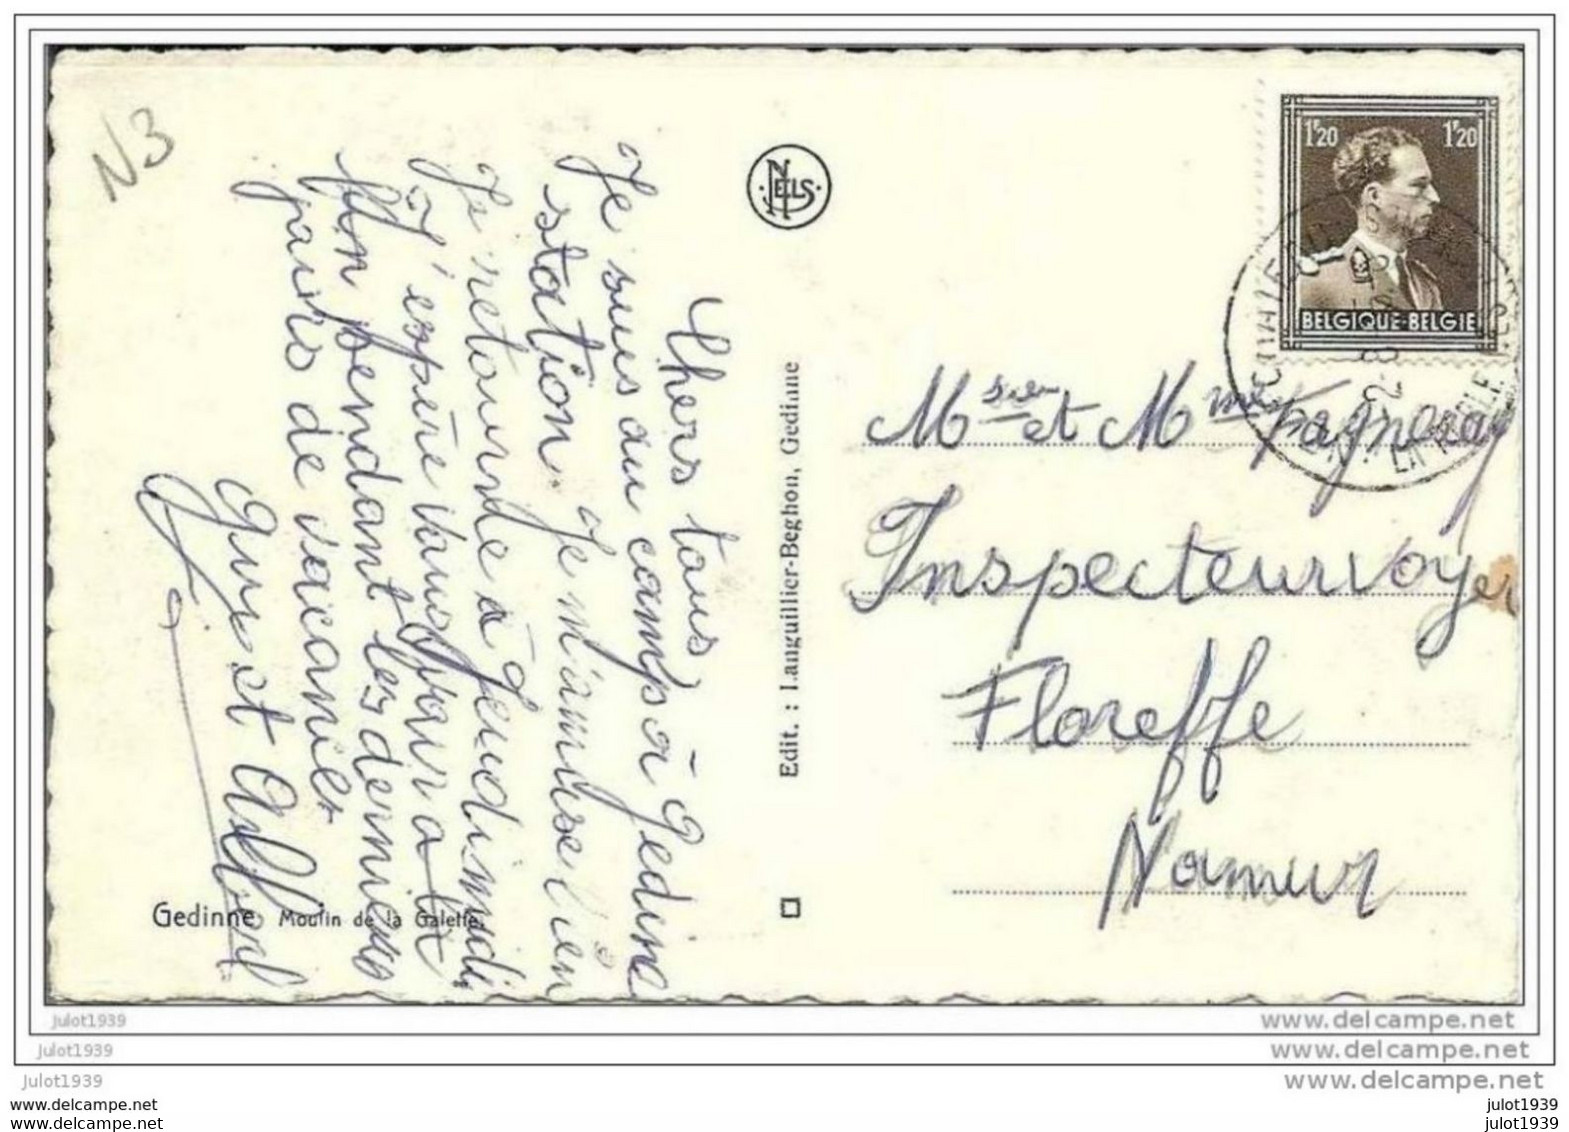 N3
NELS
1F20 1F20
BELGIQUE-BELGIE
Chers tous,
Je suis au camp à Gedine
station. Je m'amuse bien
Je retourne à Jeudi midi
J'espère vous pour a la
fin pendant les dernieus
jours de vacances
Guy et
Edit. : Languillier-Beghon, Gedinne
Gedinne Moulin de la Galette
Msieu et Mme
Inspecteur voyer
Floreffe
Namur
julot1939
julot1939
julot1939
www.delcampe.net
www.delcampe.net
www.delcampe.net
www.delcampe.com
www.delcampe.com
julot1939
julot1939